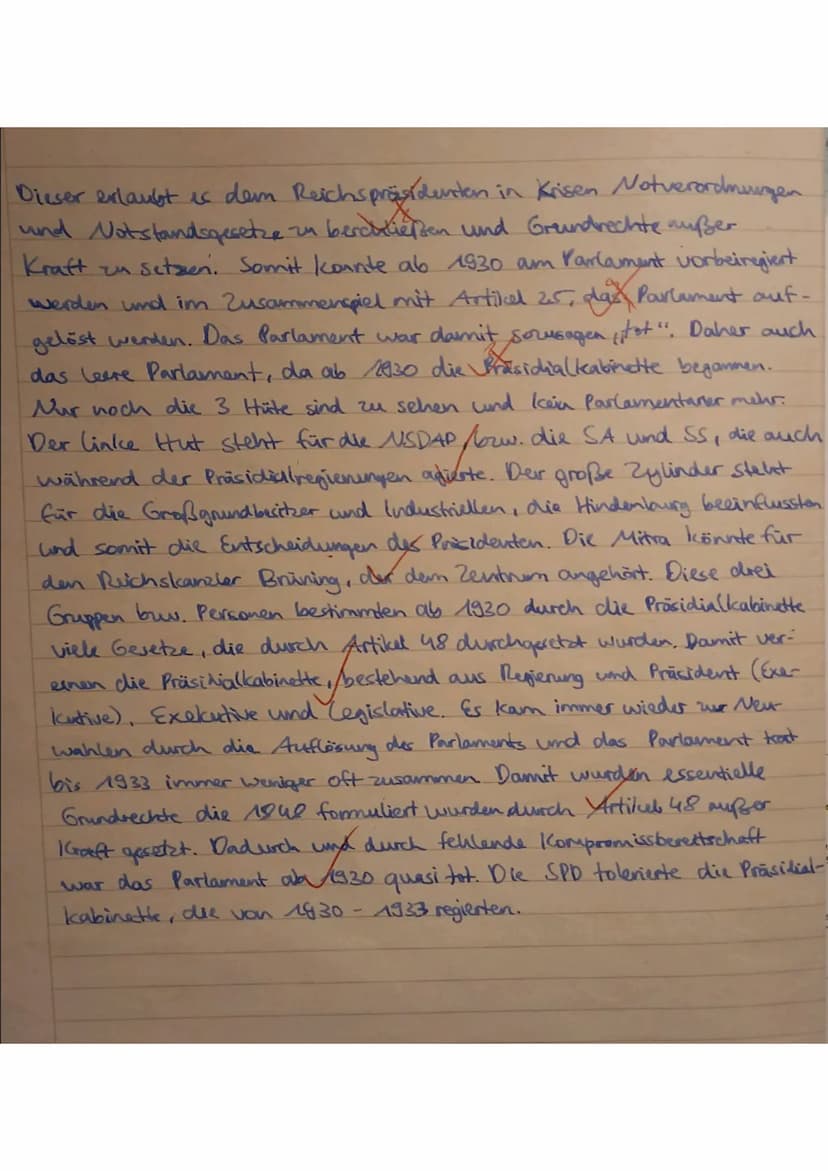 Dieser erlaubt es dem Reichspräsidenten in Krisen Notverordnungen
und Notstandsgesetze zu beschließen und Grundrechte außer
Kraft zu setzen. Somit konnte ab 1930 am Parlament vorbeiregiert
werden und im Zusammenspiel mit Artikel 25, das Parlament auf-
gelöst werden. Das Parlament war damit sozusagen „tot“. Daher auch
das leere Parlament, da ab 1930 die Präsidialkabinette begannen.
Nur noch die 3 Hüte sind zu sehen und kein Parlamentarier mehr.
Der linke Hut steht für die NSDAP, bzw. die SA und SS, die auch
während der Präsidialregierungen agierte. Der große Zylinder steht
für die Großgrundbesitzer und Industriellen, die Hindenburg beeinflussten
und somit die Entscheidungen des Präsidenten. Die Mitra könnte für
den Reichskanzler Brüning, der dem Zentrum angehört. Diese drei
Gruppen bzw. Personen bestimmten ab 1930 durch die Präsidialkabinette
viele Gesetze, die durch Artikel 48 durchgesetzt wurden. Damit ver-
einen die Präsidialkabinette, bestehend aus Regierung und Präsident (Exe-
kutive), Exekutive und Legislative. Es kam immer wieder zur Neu-
wahlen durch die Auflösung des Parlaments und das Parlament trat
bis 1933 immer weniger oft zusammen. Damit wurden essentielle
Grundrechte die formuliert wurden durch Artikel 48 außer
Kraft gesetzt. Dadurch und durch fehlende Kompromissbereitschaft
war das Parlament ab 1930 quasi tot. Die SPD tolerierte die Präsidial-
kabinette, die von 1930 - 1933 regierten.